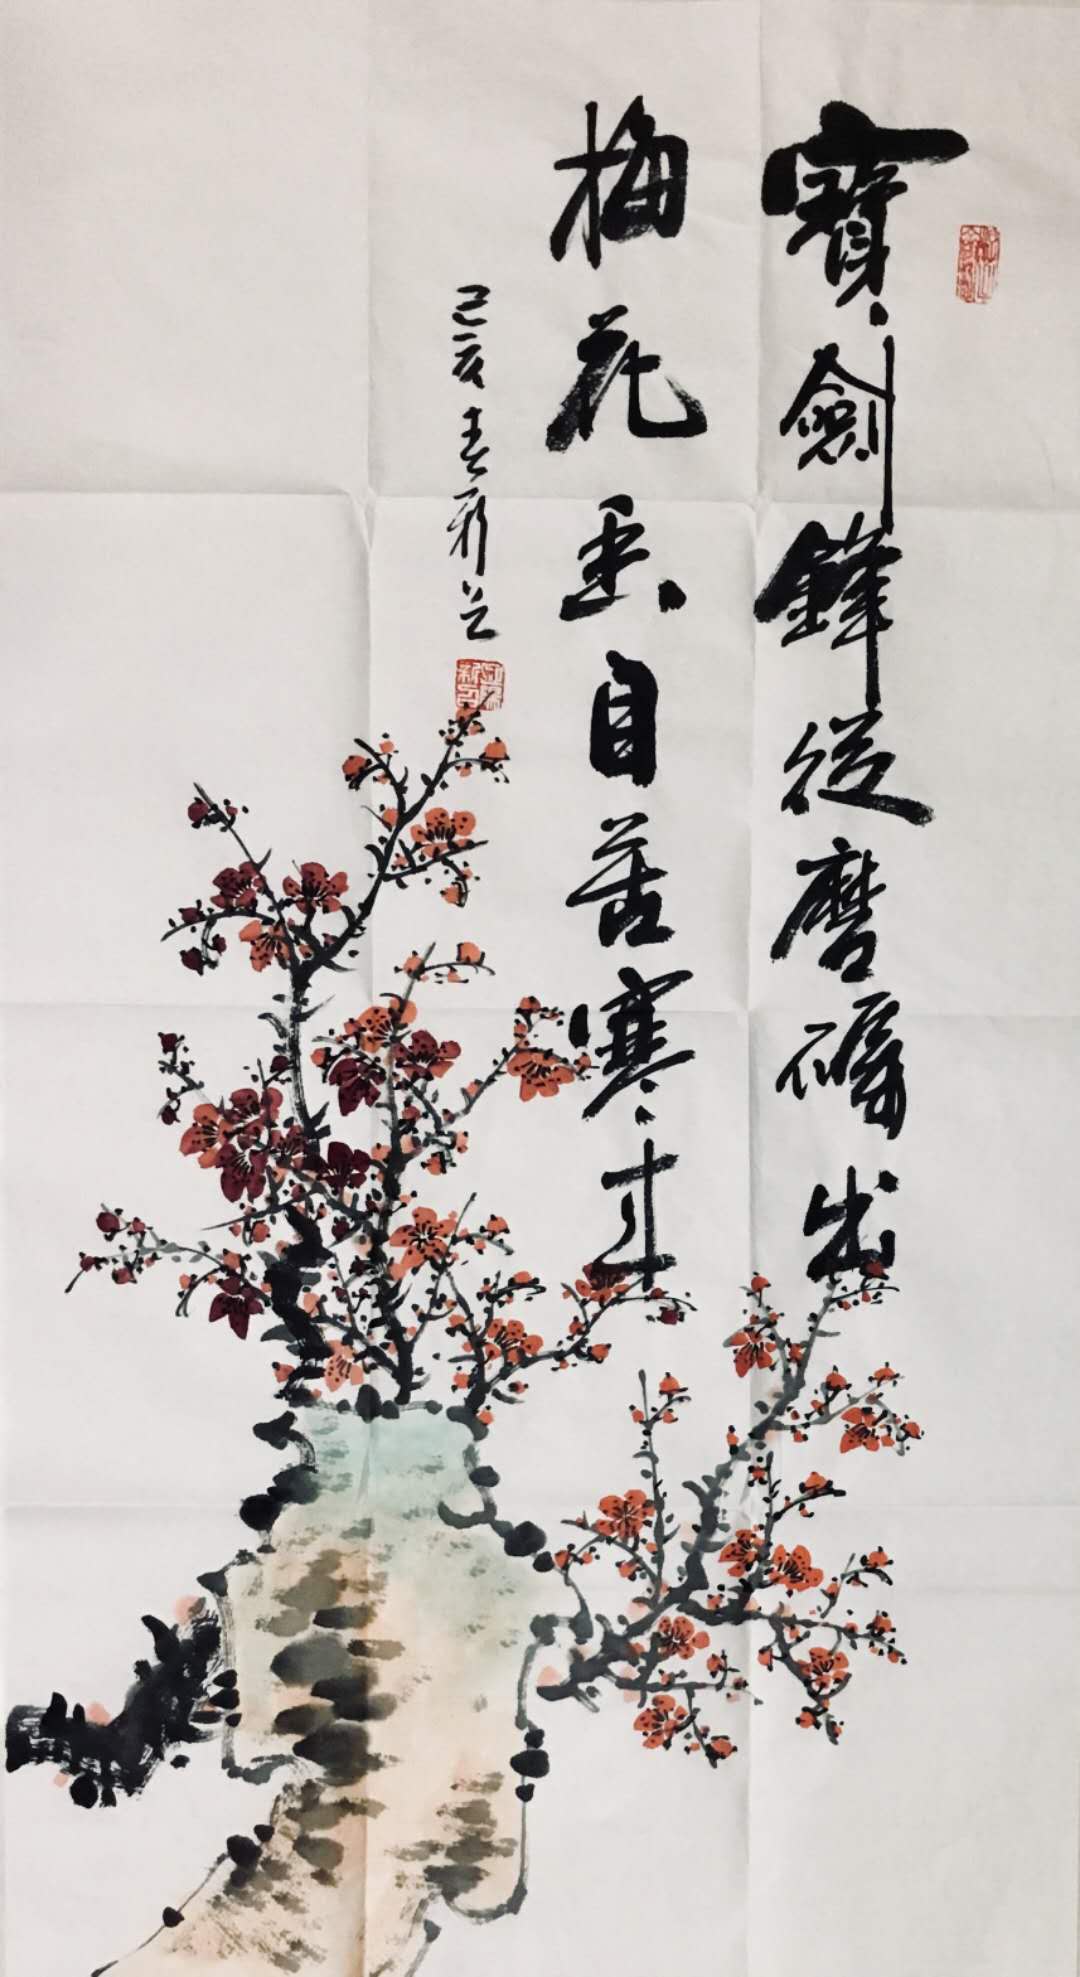 寶劍鋒從磨礪出
梅花香自苦寒来
己亥春